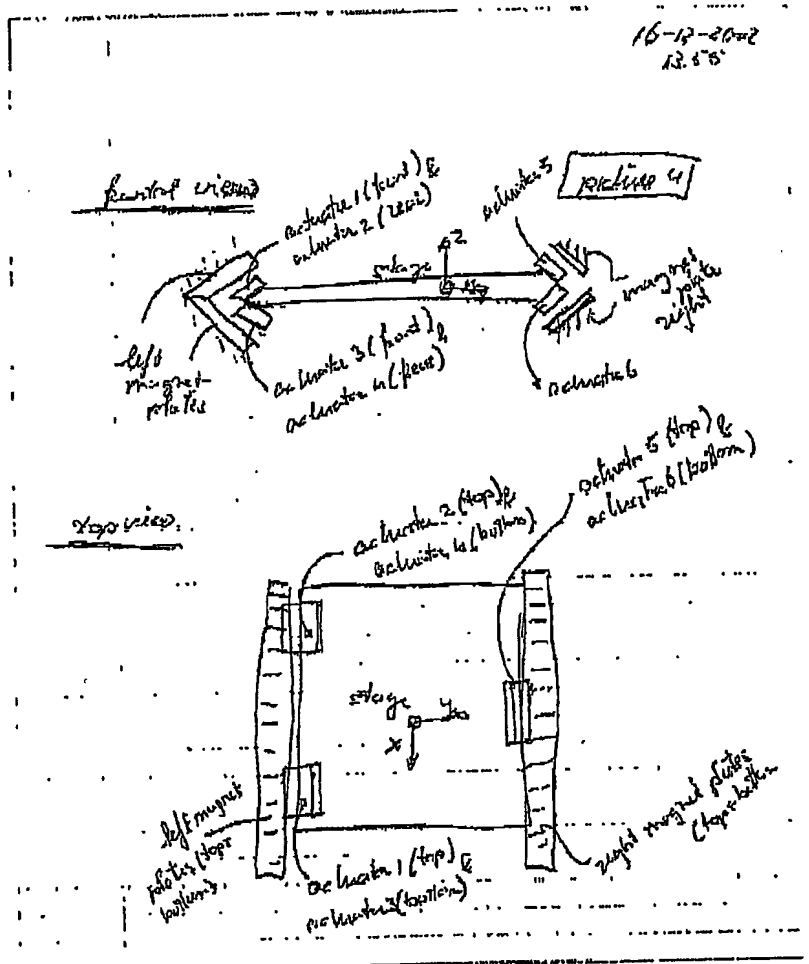 13.55
frontal view
picture 4
actuator 1 (front) &
actuator 2 (rear)
actuator 5
stage
z
y
magnet
plate
right
left
magnet
plates
actuator 3 (front) &
actuator 4 (rear)
actuator 6
Top view
actuator 2 (top) &
actuator 4 (bottom)
actuator 5 (top) &
actuator 6 (bottom)
stage
y
x
left magnet
plates (top +
bottom)
right magnet plates
(top + bottom
actuator 1 (top) &
actuator 3 (bottom)